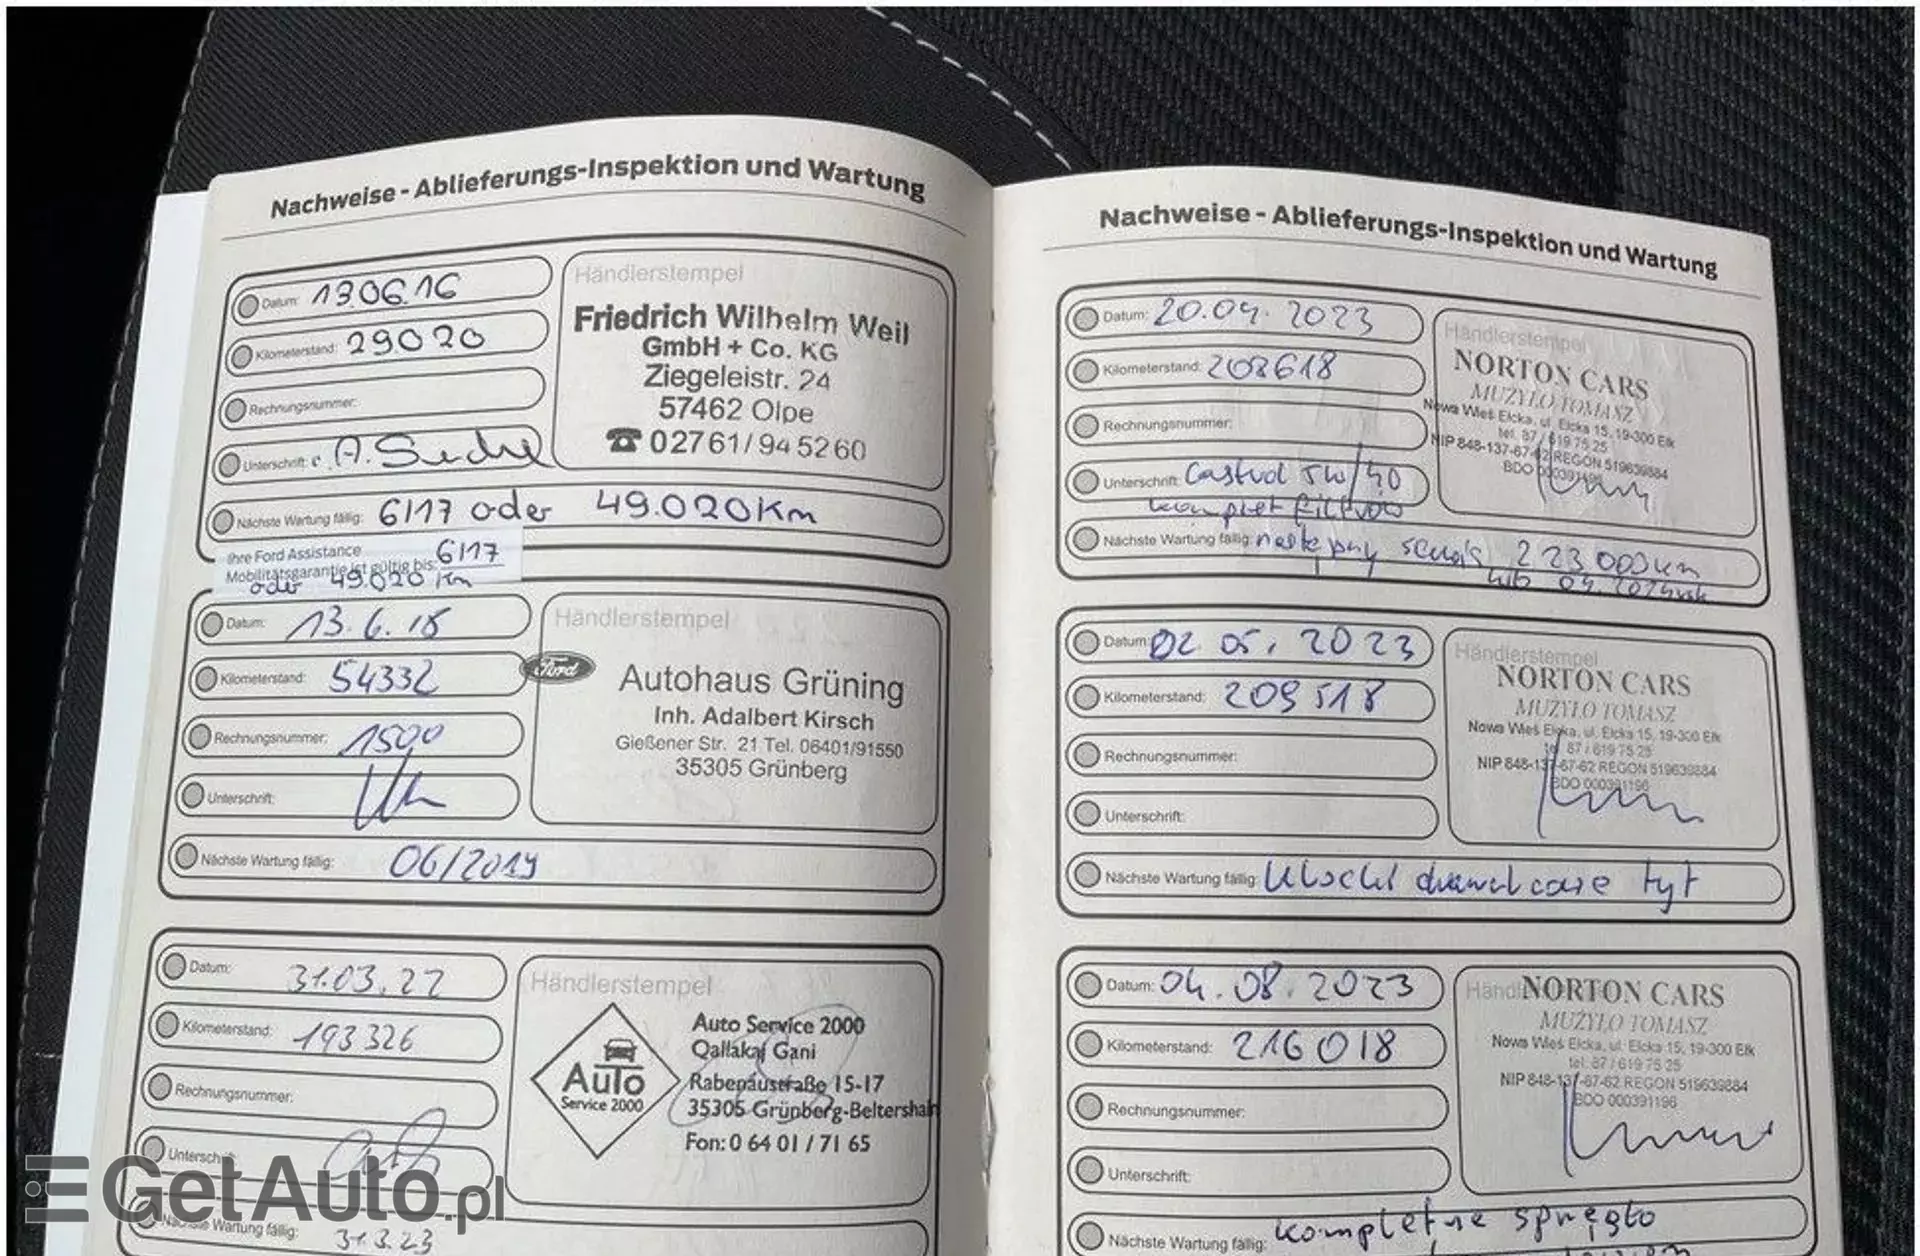 Nachweise - Ablieferungs-Inspektion und Wartung
Datum: 13.06.16
Kilometerstand: 29020
Rechnungsnummer:
Unterschrift:
Händlerstempel
Friedrich Wilhelm Weil
GmbH + Co. KG
Ziegeleistr. 24
57462 Olpe
☎ 02761/945260
Nächste Wartung fällig: 6/17 oder 49.020 Km
Ihre Ford Assistance
Mobilitätsgarantie ist gültig bis: 6/17
oder 49.020 Km
Datum: 13.6.18
Kilometerstand: 54332
Rechnungsnummer: 1500
Unterschrift:
Händlerstempel
Ford
Autohaus Grüning
Inh. Adalbert Kirsch
Gießener Str. 21 Tel. 06401/91550
35305 Grünberg
Nächste Wartung fällig: 06/2019
Datum: 31.03.22
Kilometerstand: 193326
Rechnungsnummer:
Unterschrift:
Händlerstempel
Auto
Service 2000
Auto Service 2000
Qallakaj Gani
Rabenaustraße 15-17
35305 Grünberg-Beltershain
Fon: 0 64 01 / 71 65
Nächste Wartung fällig: 31.3.23
Nachweise - Ablieferungs-Inspektion und Wartung
Datum: 20.04.2023
Kilometerstand: 208618
Rechnungsnummer:
Unterschrift: Castrol 5W/40
komplet filtrów
Händlerstempel
NORTON CARS
MUZYŁO TOMASZ
Nowa Wieś Ełcka, ul. Ełcka 15, 19-300 Ełk
tel. 87 / 619 75 25
NIP 848-137-67-62 REGON 519639884
BDO 000391196
Nächste Wartung fällig: następny serwis 223 000 km
lub 04.2024
Datum: 02.05.2023
Kilometerstand: 209518
Rechnungsnummer:
Unterschrift:
Händlerstempel
NORTON CARS
MUZYŁO TOMASZ
Nowa Wieś Ełcka, ul. Ełcka 15, 19-300 Ełk
tel. 87 / 619 75 25
NIP 848-137-67-62 REGON 519639884
BDO 000391196
Nächste Wartung fällig: klocki hamulcowe tył
Datum: 04.08.2023
Kilometerstand: 216018
Rechnungsnummer:
Unterschrift:
Händlerstempel
NORTON CARS
MUZYŁO TOMASZ
Nowa Wieś Ełcka, ul. Ełcka 15, 19-300 Ełk
tel. 87 / 619 75 25
NIP 848-137-67-62 REGON 519639884
BDO 000391196
Nächste Wartung fällig: kompletne sprzęgło
GetAuto.pl